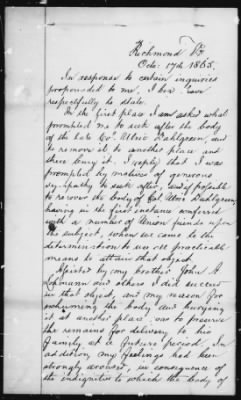 Richmond Va
Octr. 17th 1865.
In response to certain inquiries
propounded to me, I beg leave
respectfully to state.
In the first place I am asked what
prompted me to seek after the body
of the late Col. Ulric Dahlgren, and
to remove it to another place and
there bury it. I reply that I was
prompted by motives of generous
sympathy to seek after, and if possible
to recover the body of Col. Ulric Dahlgren,
having in the first instance conferred
with a number of Union friends upon
the subject, when we came to the
determination to use all practicable
means to attain that object.
Assisted by my brother John A.
Lohmann and others I did succeed
in that object, and my reason for
exhuming the body and burying
it at another place was to preserve
the remains for delivery to his
family at a future period. In
addition, my feelings had been
strongly aroused, in consequence of
the indignities to which the body of